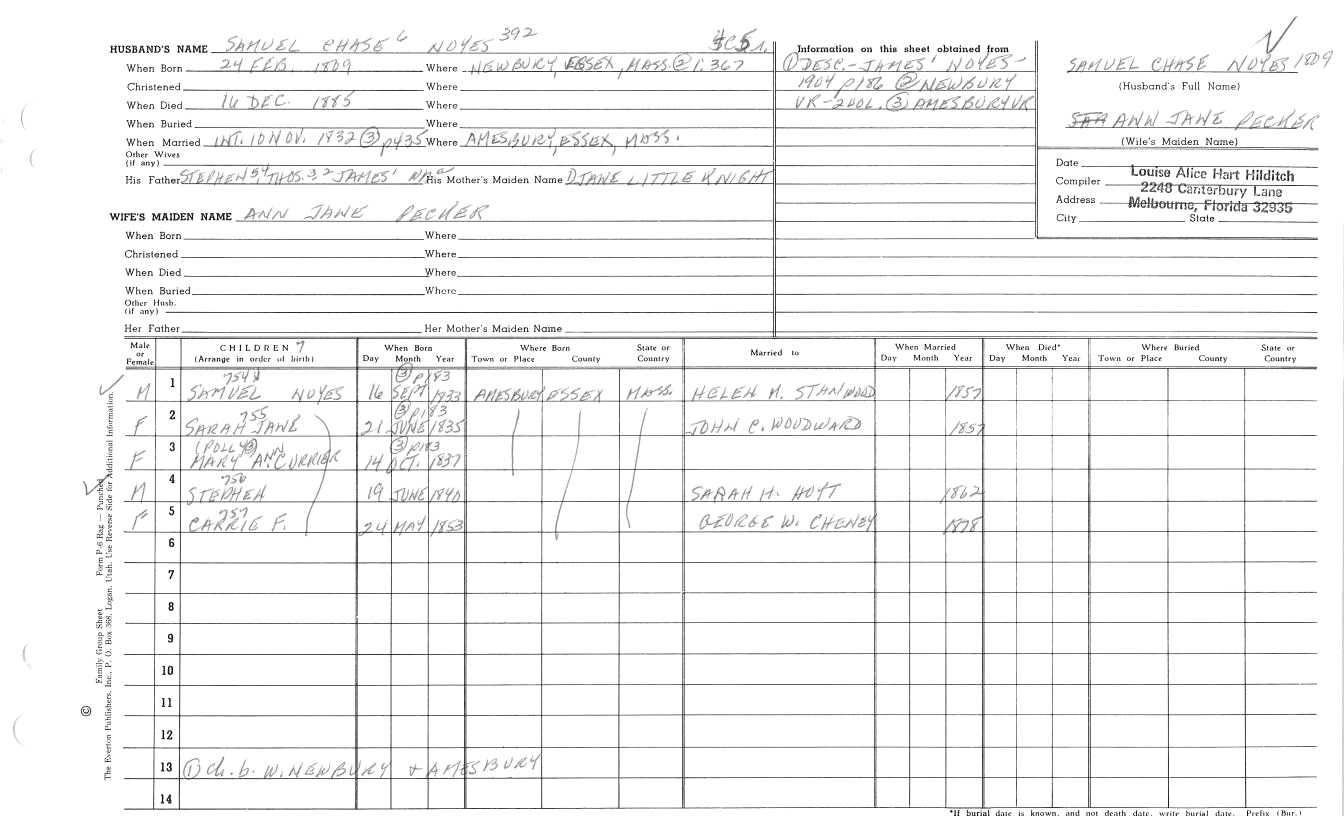 HUSBAND'S NAME SAMUEL CHASE 6 NOYES 392
When Born 24 FEB. 1809 Where NEWBURY, ESSEX, MASS. ② 1:367
Christened Where
When Died 16 DEC. 1885 Where
When Buried Where
When Married INT. 10 NOV. 1832 ③ p435 Where AMESBURY, ESSEX, MASS.
Other Wives
(if any)
His Father STEPHEN 5,4 THOS. 3 2 JAMES' His Mother's Maiden Name JANE LITTLE KNIGHT
WIFE'S MAIDEN NAME ANN JANE PECKER
When Born Where
Christened Where
When Died Where
When Buried Where
Other Husb.
(if any)
Her Father Her Mother's Maiden Name
Information on this sheet obtained from
① DESC.-JAMES' NOYES-
1904 p186 ② NEWBURY
VR-2VOL. ③ AMESBURY VR
SAMUEL CHASE NOYES 1809
(Husband's Full Name)
SAR ANN JANE PECKER
(Wife's Maiden Name)
Date
Compiler Louise Alice Hart Hilditch
Address 2248 Canterbury Lane
Melbourne, Florida 32935
City State
Male or Female CHILDREN 7 (Arrange in order of birth) When Born Day Month Year Where Born Town or Place County State or Country Married to When Married Day Month Year When Died* Day Month Year Where Buried Town or Place County State or Country
754 ③ p183
M 1 SAMUEL NOYES 16 SEPT 1933 AMESBURY ESSEX MASS. HELEN M. STANWOOD 1857
755 ③ p183
F 2 SARAH JANE 21 JUNE 1835 JOHN C. WOODWARD 1857
(POLLY ③ ③ p183
F 3 MARY ANN CURRIER 14 OCT. 1837
756
M 4 STEPHEN 19 JUNE 1840 SARAH H. HOYT 1862
757
F 5 CARRIE F. 24 MAY 1853 GEORGE W. CHENEY 1878
6
7
8
9
10
11
12
13 ① Ch. b. W. NEWBURY + AMESBURY
14
© Family Group Sheet Form P-6 Rag — Punched
The Everton Publishers, Inc., P. O. Box 368, Logan, Utah. Use Reverse Side for Additional Information.
*If burial date is known, and not death date, write burial date. Prefix (Bur.)